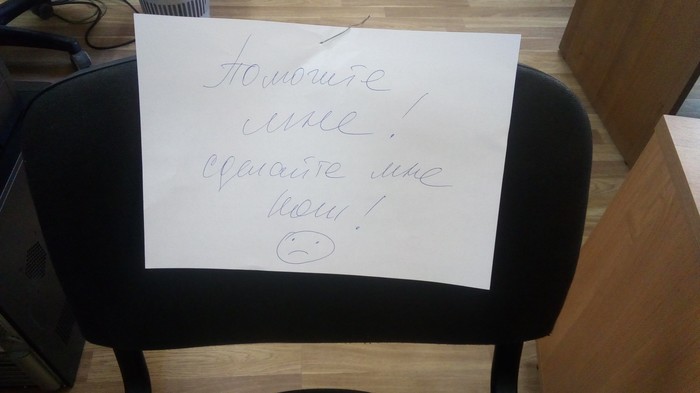 Помогите
мне!
сделайте мне